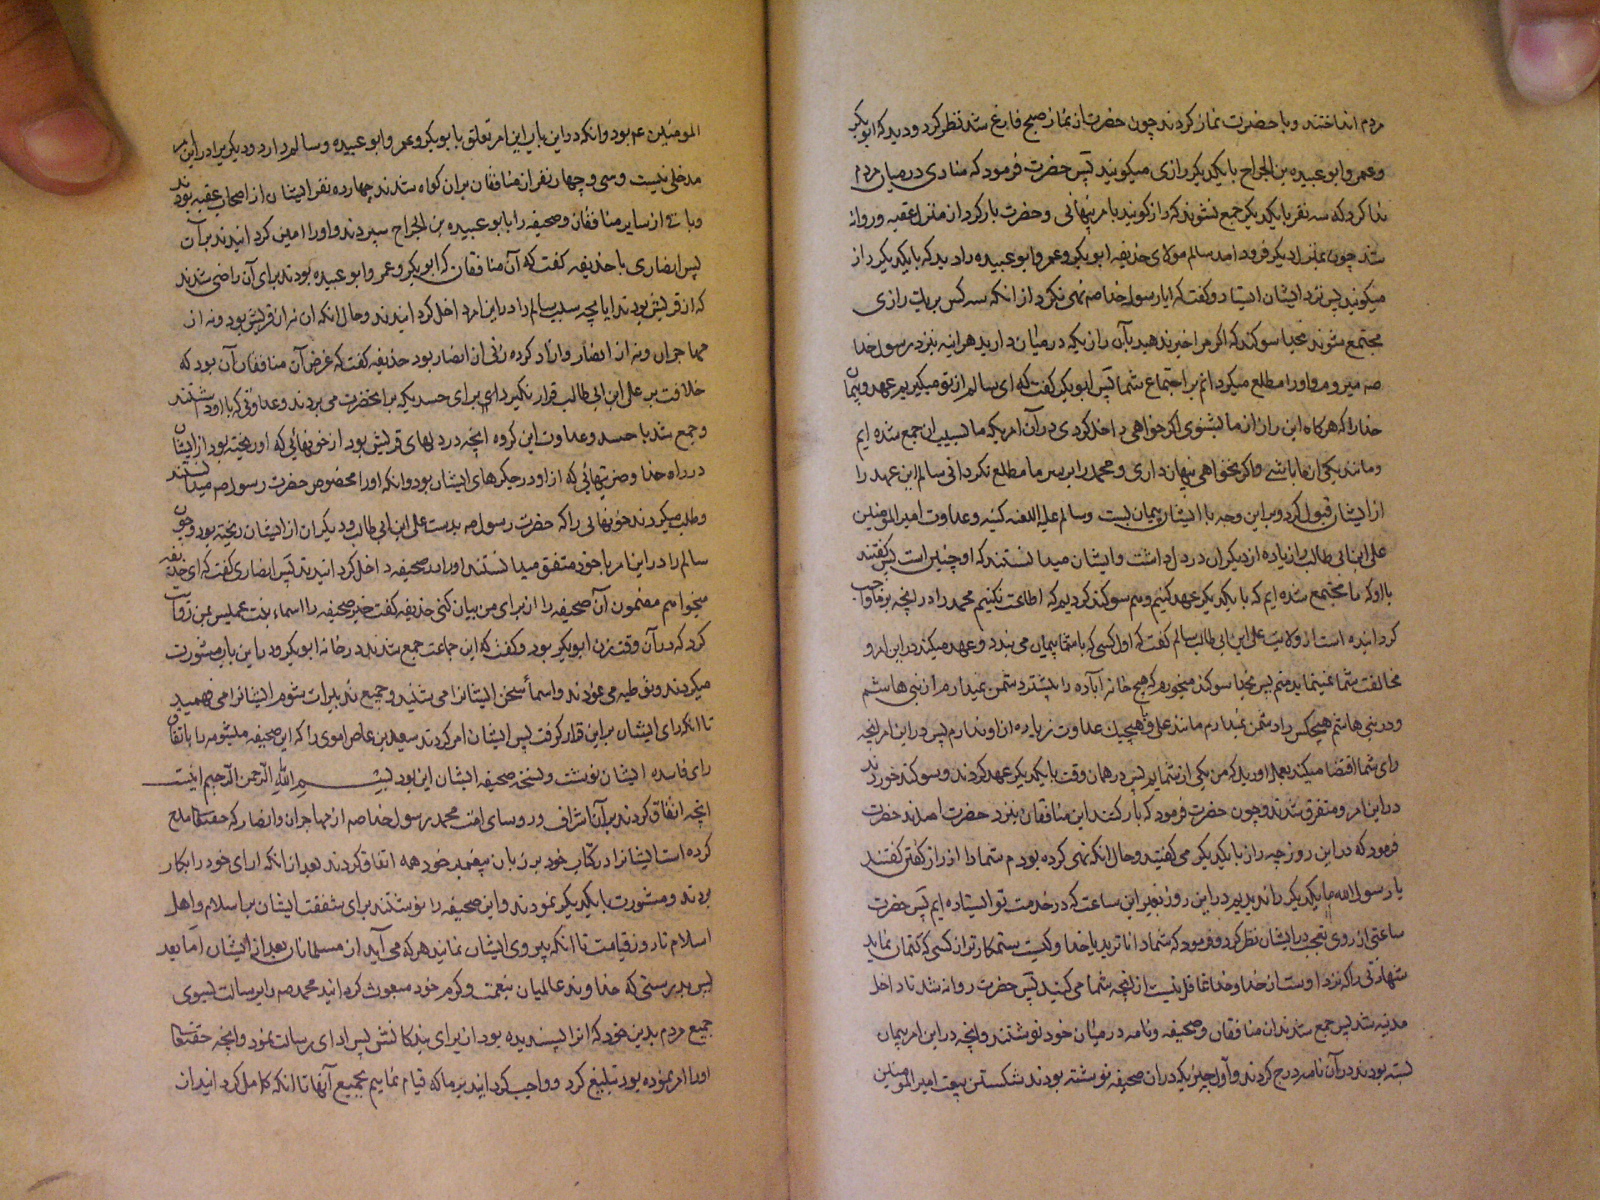 مردم انداختند و با حضرت نماز کردند چون حضرت از نماز صبح فارغ شد نظر کرد و دید که ابو بکر
و عمر و ابو عبیده بن الجراح با یکدیکر رازی میکویند پس حضرت فرمود که منادی در میان مردم
ندا کرد که سه نفر با یکدیکر جمع نشوند که راز کویند با مر پنهانی و حضرت بار کرد از منزل عقبه و روانه
شد چون بمنزل دیکر فرود امد سالم مولای حذیفه ابو بکر و عمر و ابو عبیده را دید که با یکدیکر راز
میکویند پس نزد ایشان ایستاد و کفت که ایا رسول خدا صه نهی نکرد از انکه سه کس بر یک رازی
مجتمع شوند بخدا سوکند که اکر مرا خبر ندهید بآن رازیکه در میان دارید هر اینه بنزد رسول خدا
صه میروم و او را مطلع میکردانم بر اجتماع شما پس ابو بکر کفت که ای سالم از تو میکیریم عهد و پیمان
خدا را که هرکاه این راز از ما بشنوی اکر خواهی داخل کردی در آن امریکه ما بسبب آن جمع شده ایم
و مانند یکی از ما باشی و اکر نخواهی پنهان داری و محمد را بر سر ما مطلع نکردانی سالم این عهد را
از ایشان قبول کرد و بر این وجه با ایشان پیمان بست و سالم علیه اللعنه کینه و عداوت امیر المومنین
علی ابن ابی طالب را زیاده از دیکران در دل داشت و ایشان میدانستند که او چنین است پس کفتند
با او که ما مجتمع شده ایم که با یکدیکر عهد کنیم و هم سوکند کردیم که اطاعت نکنیم محمد را در انچه بر ما واجب
کردانیده است از ولایت علی ابن ابی طالب سالم کفت که اول کسی که با شما پیمان می بندد و عهد میکند در این امر و
مخالفت شما نمینماید منم پس بخدا سوکند میخورم که هیچ خانه آباده را بیشتر دشمن نمیدارم از بنی هاشم
و در بنی هاشم هیچکس را دشمن نمیدارم مانند علی و بهیچیک عداوت زیاده از او ندارم پس در این امر انچه
رای شما اقتضا میکند بعمل اورید که من یکی از شمایم پس در همان وقت با یکدیکر عهد کردند و سوکند خوردند
در این امر و متفرق شدند و چون حضرت فرمود که بار کنند این منافقان بنزد حضرت امدند حضرت
فرمود که در این روز چه راز با یکدیکر می کفتید و حال انکه نهی کرده بودم شما را از راز کفتن کفتند
یا رسول الله ما یکدیکر را ندیدیم در این روز بغیر این ساعت که در خدمت تو ایستاده ایم پس حضرت
ساعتی از روی تعجب در ایشان نظر کرد و فرمود که شما داناترید یا خدا و کیست ستمکارتر از کسی که کتمان نماید
شهادتی را که نزد اوست از خدا و خدا غافل نیست از انچه شما می کنید پس حضرت روانه شد تا داخل
مدینه شد پس جمع شدند ان منافقان و صحیفه و نامه در میان خود نوشتند و انچه در این امر پیمان
بسته بودند در آن نامه درج کردند و اول چیزیکه در ان صحیفه نوشته بودند شکستن بیعت امیر المومنین
المومنین عم بود و انکه در این باب این امر تعلق با بو بکر و عمر و ابو عبیده و سالم دارد و دیکریرا در این امر
مدخلی نیست و سی و چهار نفر از منافقان بر ان کواه شدند چهارده نفر ایشان از اصحاب عقبه بودند
و باقی از سایر منافقان و صحیفه را با بو عبیده بن الجراح سپردند و او را امین کردانیدند بر آن
پس انصاری با حذیفه کفت که آن منافقان که ابو بکر و عمر و ابو عبیده بودند برای آن راضی شدند
که از قریش بودند ایا بچه سبب سالم را در این امر داخل کردانیدند و حال انکه ان نه از قریش بود و نه از
مهاجران و نه از انصار و ازاد کرده زنی از انصار بود حذیفه کفت که غرض آن منافقان آن بود که
خلافت بر علی ابن ابی طالب قرار نکیرد برای حسدیکه بر انحضرت می بردند و عداوتی که با او داشتند
و جمع شد با حسد و عداوت این کروه انچه در دلهای قریش بود از خونهائی که او ریخته بود از ایشان
در راه خدا و ضربتهائی که از او در جکرهای ایشان بود و انکه او را مخصوص حضرت رسول صه میدانستند
و طلب میکردند خونهائی را که حضرت رسول صه بدست علی ابن ابی طالب و دیکران از ایشان ریخته بود و چون
سالم را در این امر با خود متفق میدانستند او را در صحیفه داخل کردانیدند پس انصاری کفت که ای حذیفه
میخواهم مضمون آن صحیفه را از برای من بیان کنی حذیفه کفت خبر صحیفه را اسماء بنت عمیس بمن روایت
کرد که در آن وقت زن ابو بکر بود و کفت که این جماعت جمع شدند در خانه ابو بکر و در این باب مشورت
میکردند و توطیه می نمودند و اسماء سخن ایشانرا می شنید و جمیع تدبیرات شوم ایشانرا می فهمید
تا انکه رای ایشان بر این قرار کرفت پس ایشان امر کردند سعید بن عاص اموی را که این صحیفه ملیشومه را باتفاق
رای فاسده ایشان نوشت و نسخه صحیفه ایشان این بود بسم الله الرحمن الرحیم اینست
انچه اتفاق کردند بر آن اشراف و روسای امت محمد رسول خدا صه از مهاجران و انصار که حقتعالی مدح
کرده است ایشانرا در کتاب خود بر زبان پیغمبر خود همه اتفاق کردند بعد از انکه ارای خود را بکار
بردند و مشورت با یکدیکر نمودند و این صحیفه را نوشتند برای شفقت ایشان بر اسلام و اهل
اسلام تا روز قیامت تا انکه پیروی ایشان نمایند هر که می آید از مسلمانان بعد از ایشان اما بعد
پس بدرستی که خداوند عالمیان بنعمت و کرم خود مبعوث کردانید محمد صه را برسالت بسوی
جمیع مردم بدین خود که انرا پسندیده بود از برای بندکانش پس ادای رسالت نمود و انچه حقتعالی
او را امر نموده بود تبلیغ کرد و واجب کردانید بر ما که قیام نمائیم بجمیع آنها تا انکه کامل کردانید ان